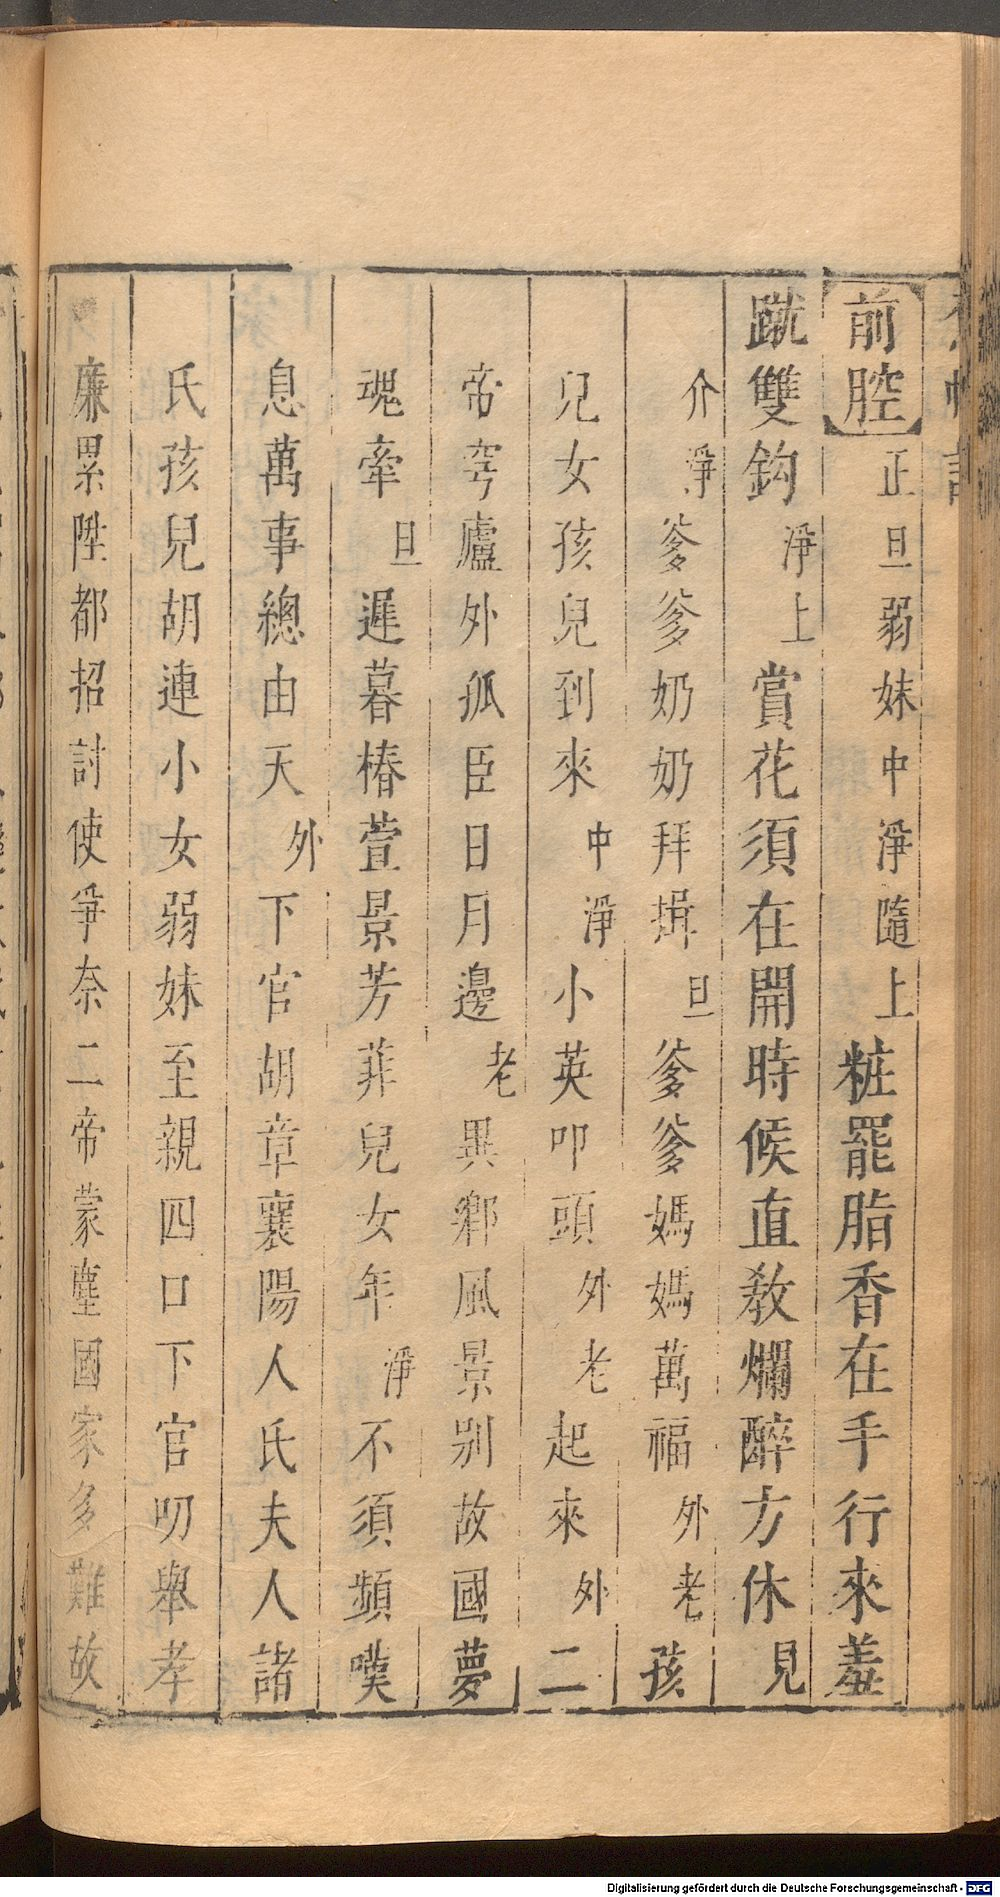 前腔正旦弱妹中淨隨上粧罷脂香在手行來羞
蹴雙鈎淨上賞花須在開時候直敎爛醉方休見
介淨爹爹奶奶拜揖旦爹爹媽媽萬福外老孩
兒女孩兒到來中淨小英叩頭外老起來外二
帝穹廬外孤臣日月邊老異鄉風景别故國夢
魂牽旦遲暮椿萱景芳菲兒女年淨不須頻嘆
息萬事總由天外下官胡章襄陽人氏夫人諸
氏孩兒胡連小女弱妹至親四口下官叨舉孝
廉累陞都招討使爭奈二帝蒙塵國家多難故
Digitalisierung gefördert durch die Deutsche Forschungsgemeinschaft - DFG